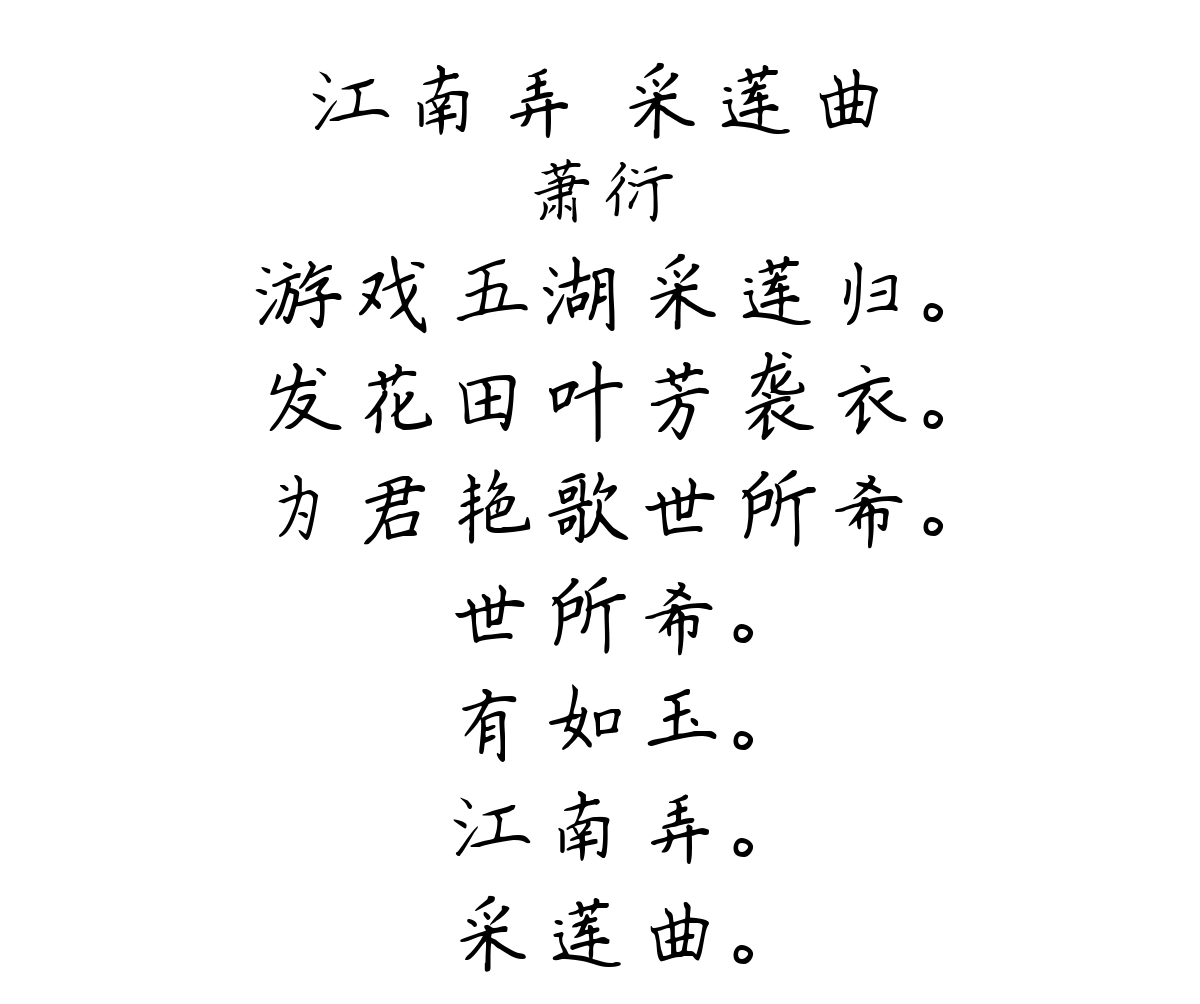 江南弄 采莲曲
萧衍
游戏五湖采莲归。
发花田叶芳袭衣。
为君艳歌世所希。
世所希。
有如玉。
江南弄。
采莲曲。